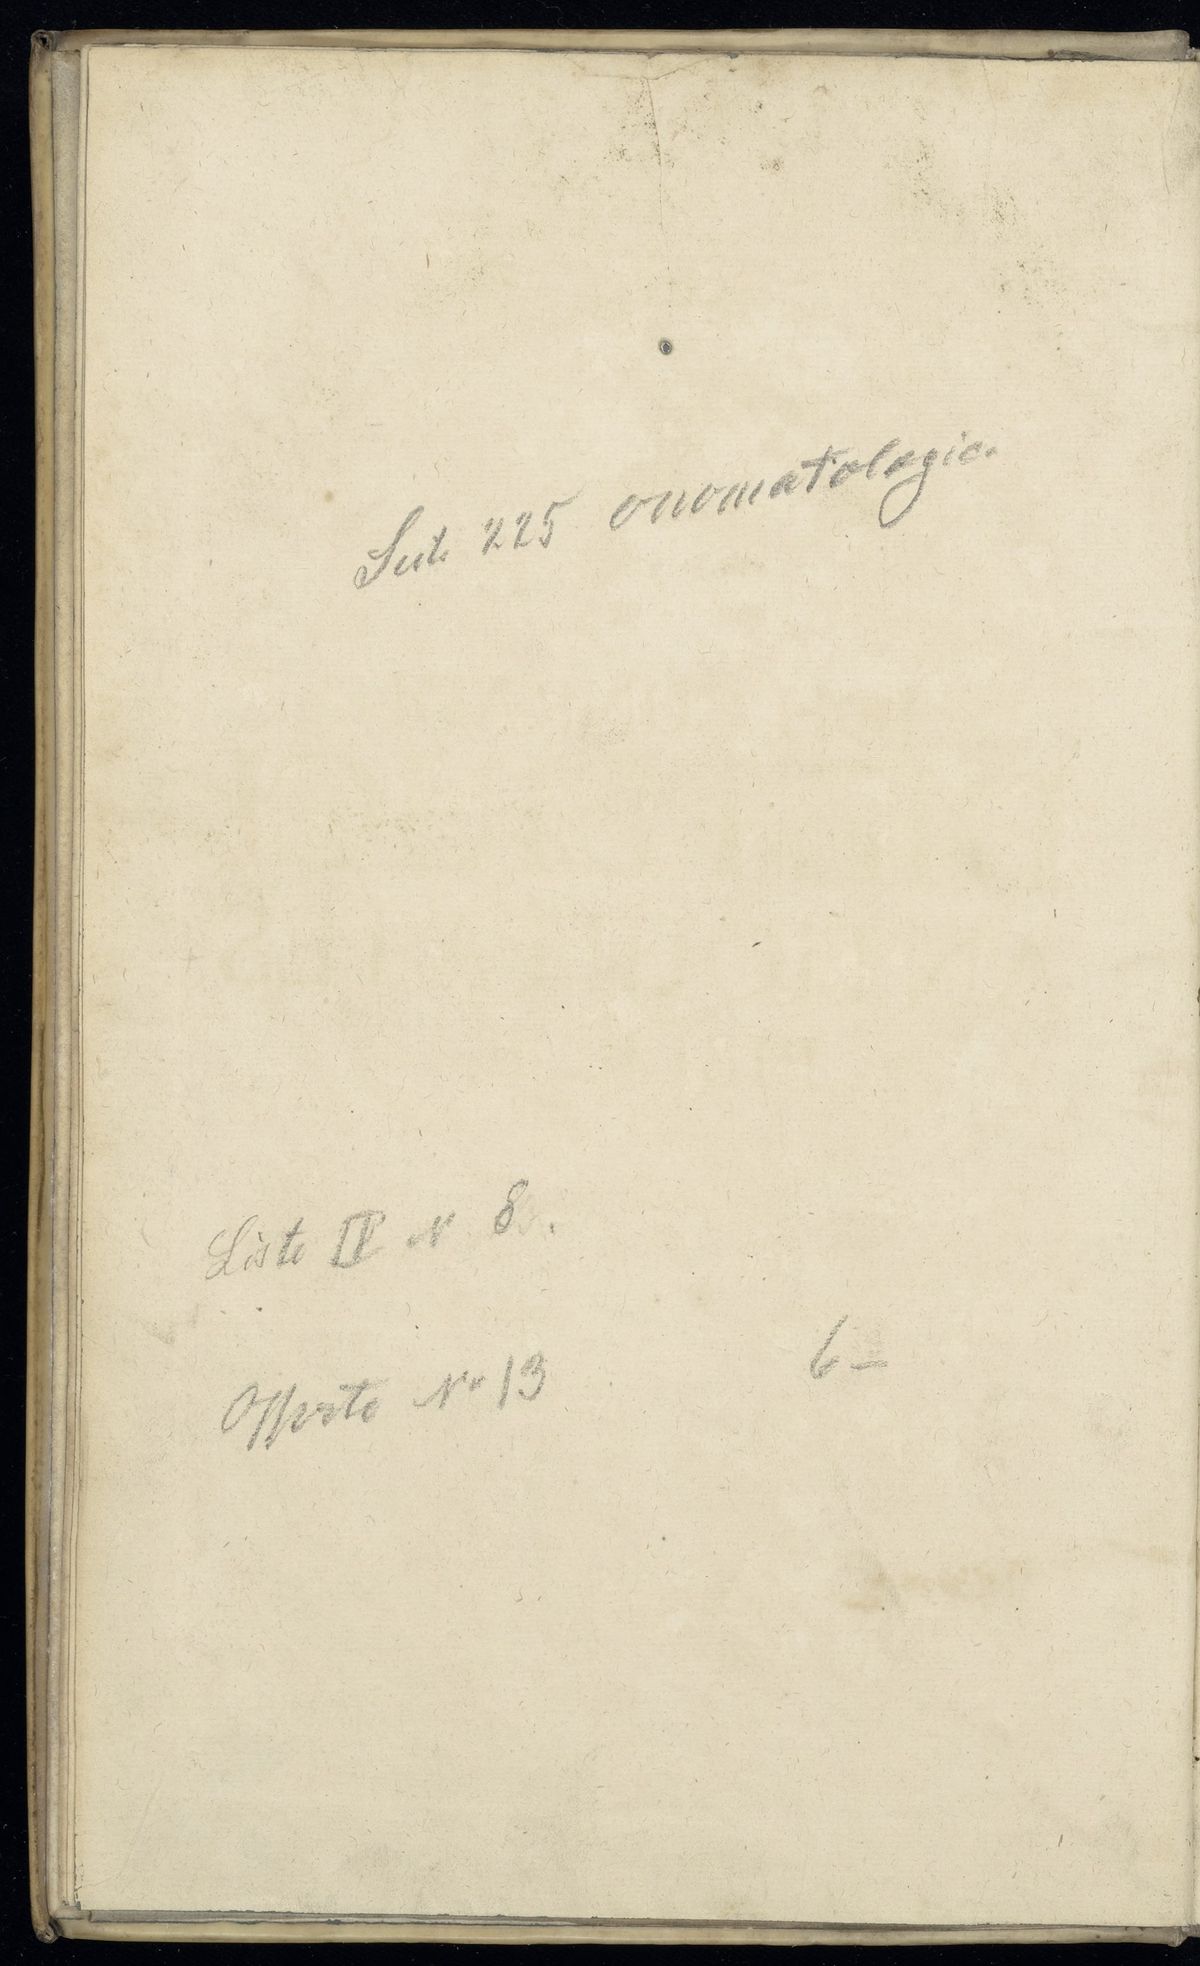 Seite 225 onomatologie.
Liste IV N 8.
Offerte No 13
6—